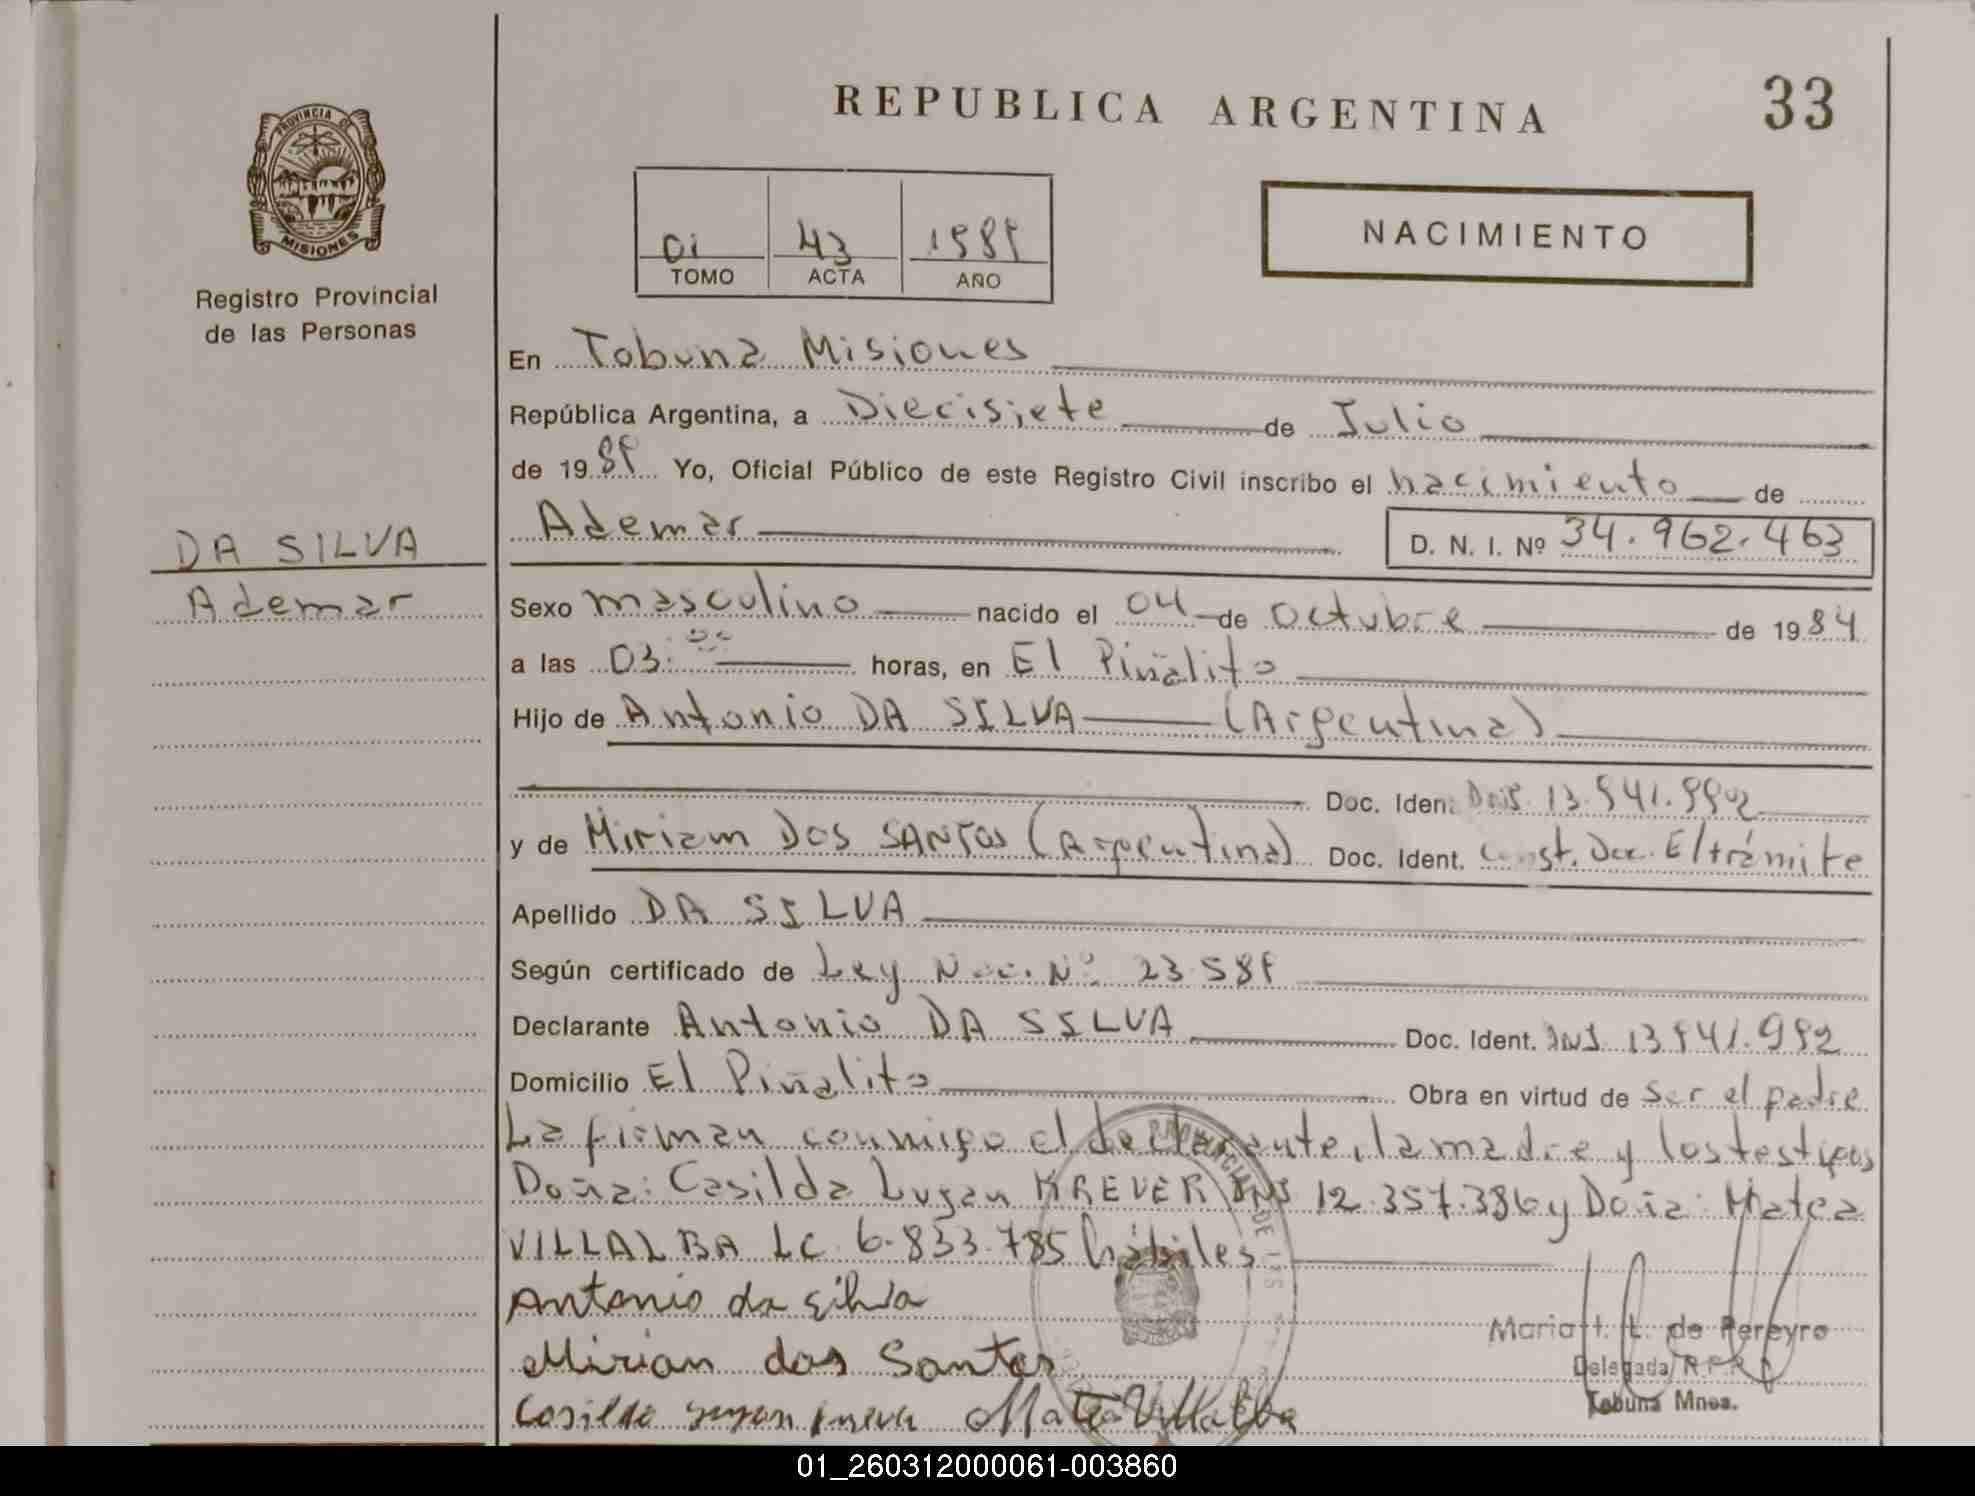 REPUBLICA ARGENTINA
33
PROVINCIA DE
MISIONES
Registro Provincial
de las Personas
01 43 1989
TOMO ACTA AÑO
NACIMIENTO
En Tobuna Misiones
República Argentina, a Diecisiete de Julio
de 1989 Yo, Oficial Público de este Registro Civil inscribo el nacimiento de
Ademar D. N. I. Nº 34.962.463
DA SILVA
Ademar
Sexo masculino nacido el 04 de Octubre de 1984
a las 03:00 horas, en El Piñalito
Hijo de Antonio DA SILVA (Argentina)
Doc. Iden. DNI. 13.941.992
y de Miriam DOS SANTOS (Argentina) Doc. Ident. Const. Doc. E/trámite
Apellido DA SILVA
Según certificado de Ley Nac. Nº 23.589
Declarante Antonio DA SILVA Doc. Ident. DNI 13.941.992
Domicilio El Piñalito Obra en virtud de Ser el padre
La firman conmigo el declarante, la madre y los testigos
Doña: Casilda Lujan KREVER DNI 12.357.386 y Doña: Matea
VILLALBA LC. 6.833.785 hábiles
Antonio da Silva
Mirian dos Santos
Matea Villalba
Maria de Pereyro
Delegada R.P.P.
Tobuna Mnes.
01_260312000061-003860